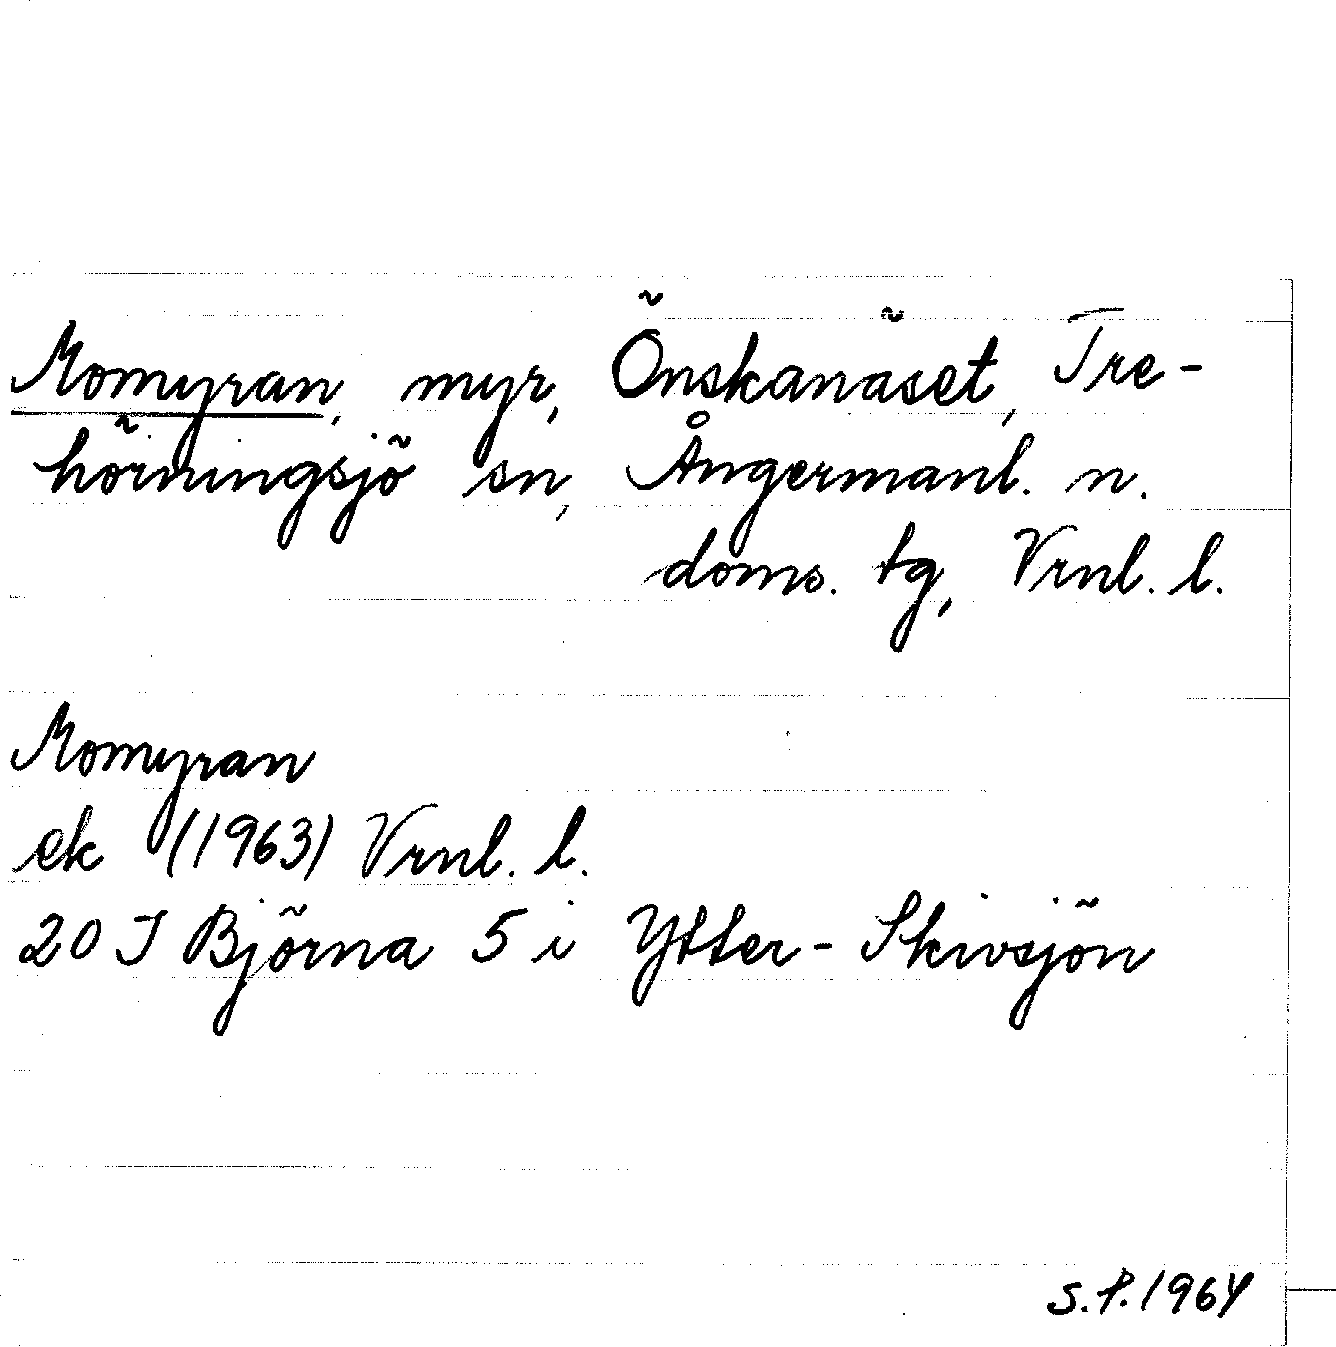 Momyran, myr, Önskanäset, Tre-
hörningsjö sn, Ångermanl. n.
doms. tg, Vrnl. l.
Momyran
ek (1963) Vrnl. l.
20 J Björna 5 i Ytter-Skivsjön
S.P. 1964